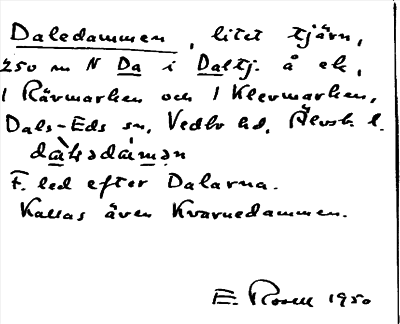 Daledammen, litet tjärn,
250 m N Da i Daltj. å ek,
i Rävmarken och i Klevmarken,
Dals-Eds sn, Vedbo hd, Älvsb. l.
dàlədámən
F. led efter Dalarna.
Kallas även Kvarnedammen.
E. Rosell 1950